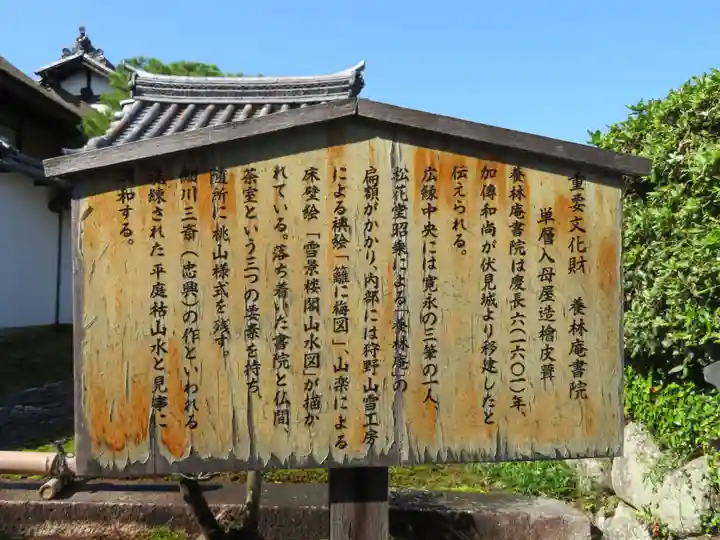 重要文化財　養林庵書院
単層入母屋造檜皮葺
養林庵書院は慶長六(一六〇一)年、
加傳和尚が伏見城より移建したと
伝えられる。
広縁中央には寛永の三筆の一人、
松花堂昭乗による「養林庵」の
扁額がかかり、内部には狩野山雪工房
による襖絵「籬に梅図」、山楽による
床壁絵「雪景楼閣山水図」が描か
れている。落ち着いた書院と仏間、
茶室という三つの要素を持ち、
随所に桃山様式を残す。
細川三斎(忠興)の作といわれる
洗練された平庭枯山水と見事に
調和する。